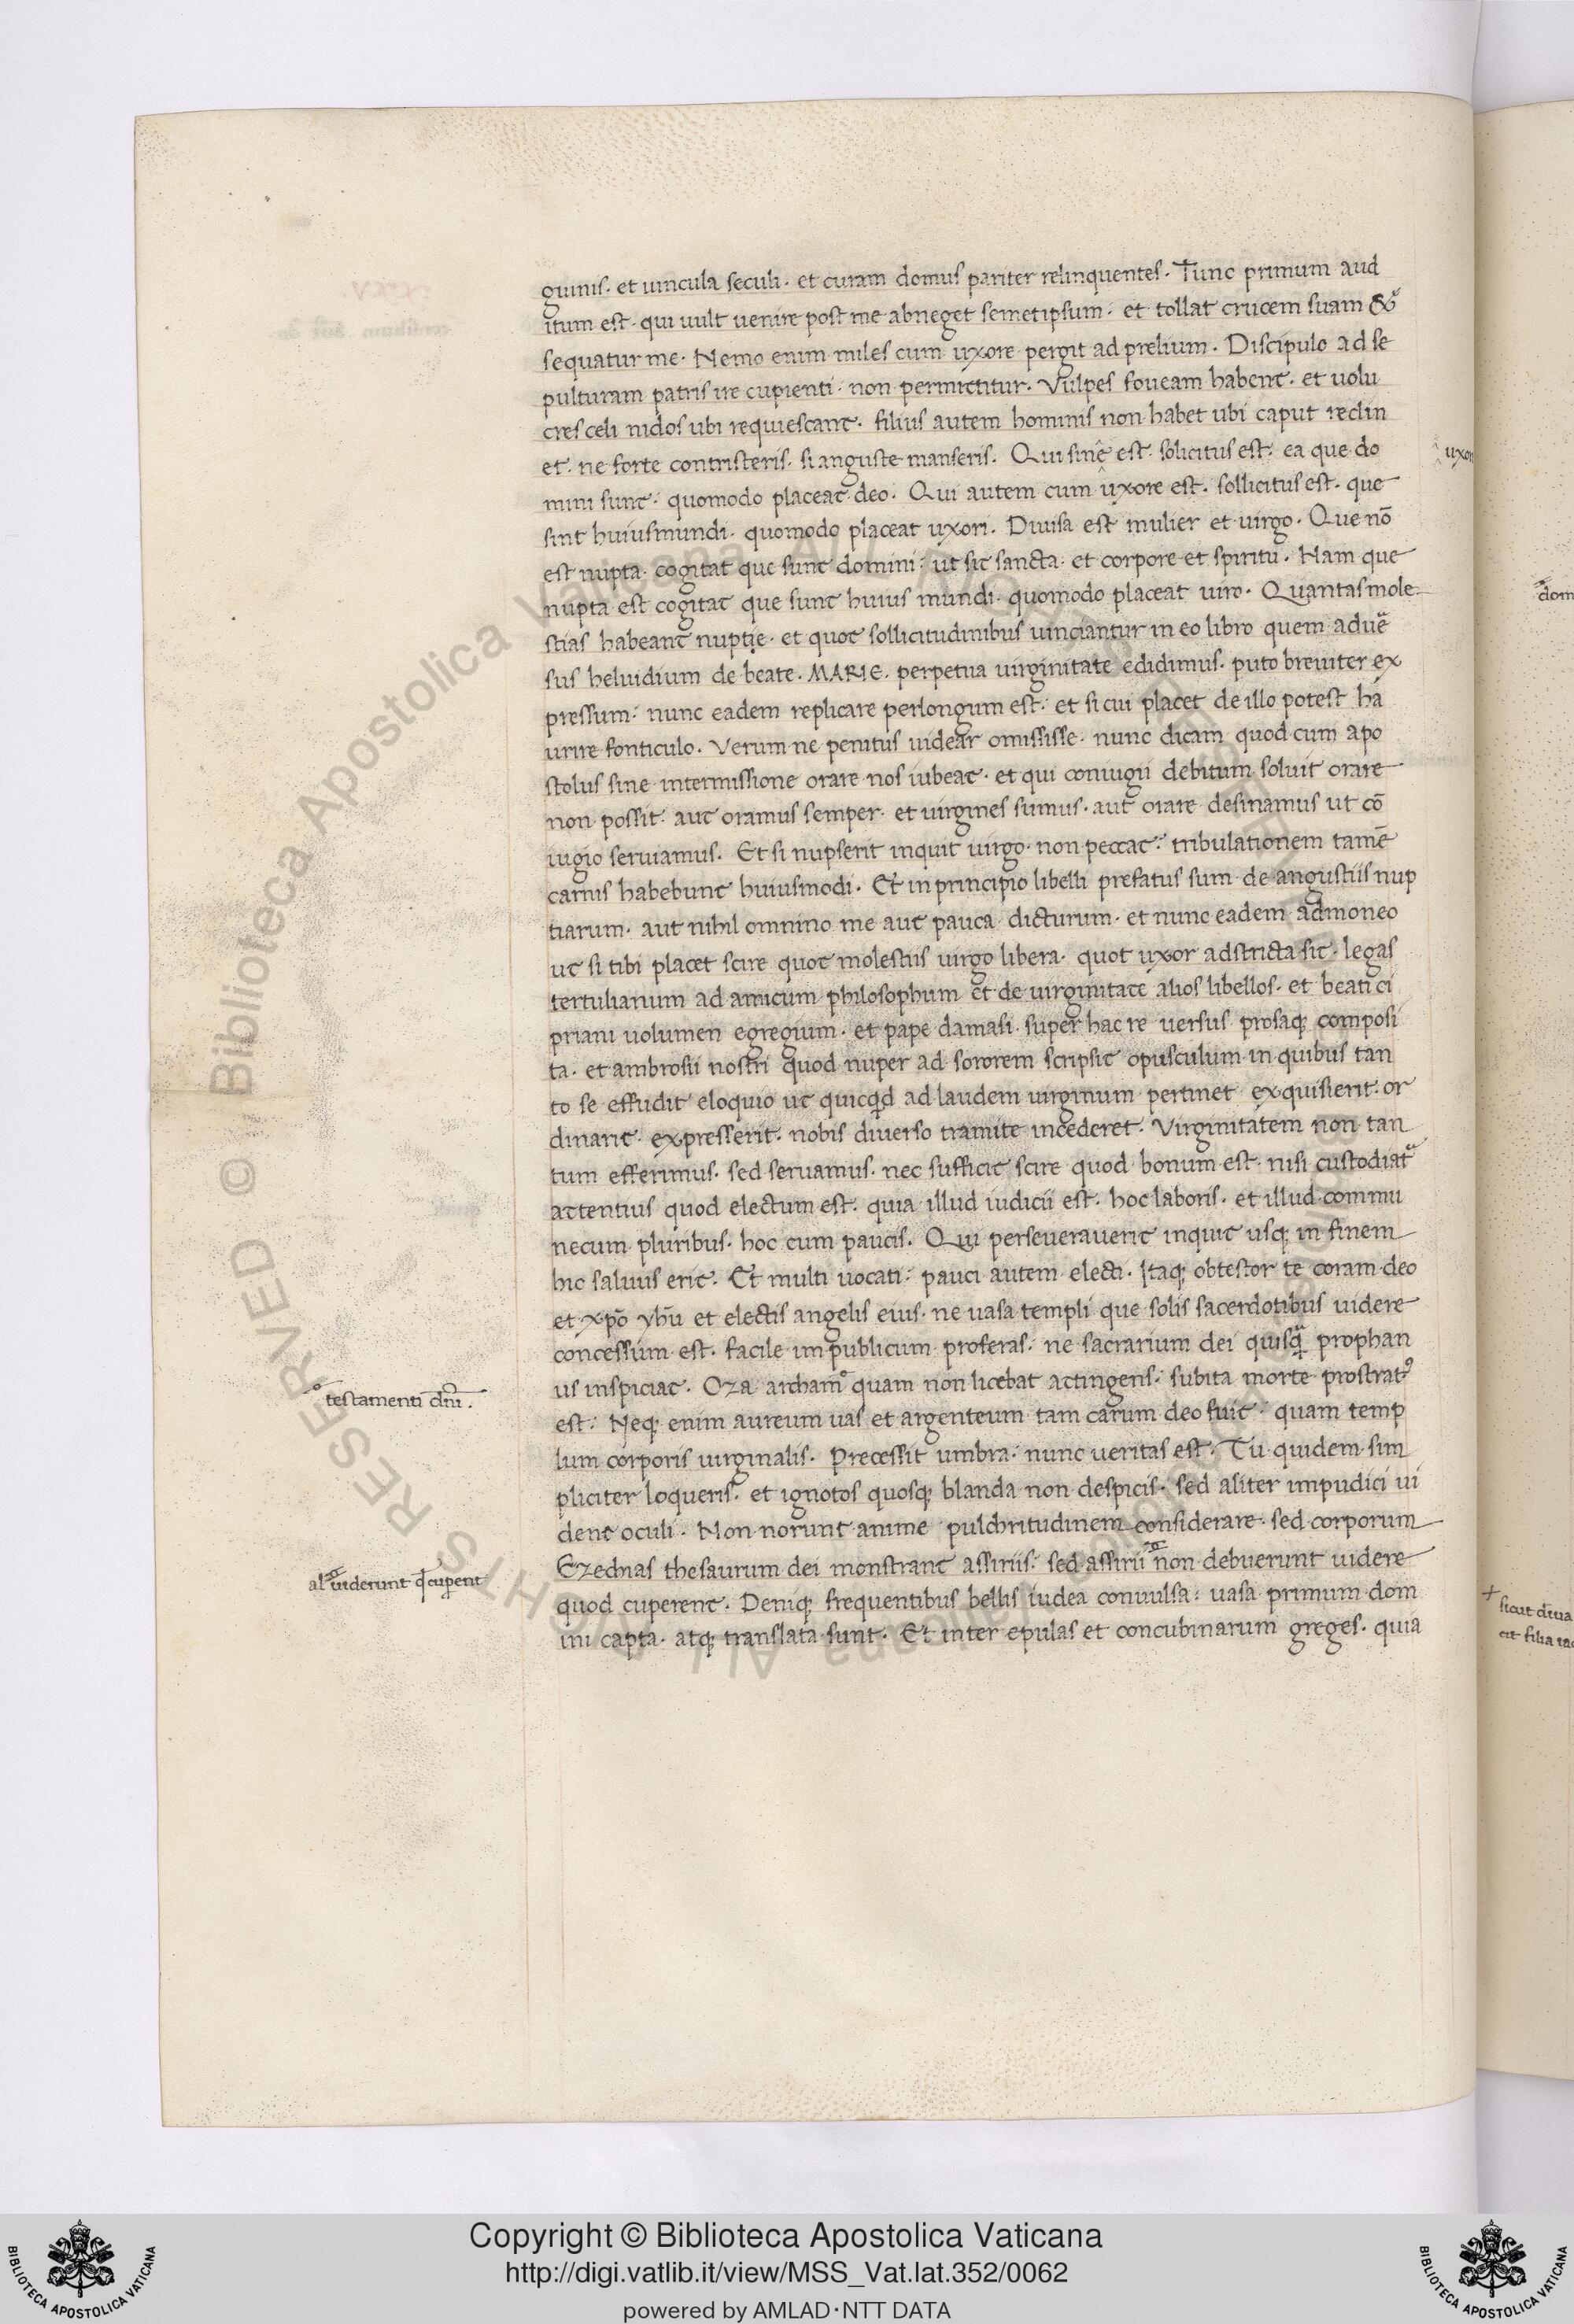 guinis · et uincula seculi · et curam domus pariter relinquentes · Tunc primum aud
itum est · qui uult uenire post me abneget semetipsum · et tollat crucem suam &
sequatur me · Nemo enim miles cum uxore pergit ad prelium · Discipulo ad se
pulturam patris ire cupienti · non permictitur · Vulpes foueam habent · et uolu
cres celi nidos ubi requiescant · filius autem hominis non habet ubi caput reclin
et · ne forte contristeris · si anguste manseris · Qui sine est · solicitus est · ea que do
mini sunt · quomodo placeat deo · Qui autem cum uxore est · sollicitus est · que
sint huius mundi · quomodo placeat uxori · Diuisa est mulier et uirgo · Que nō
est nupta · cogitat que sunt domini · ut sit sancta · et corpore et spiritu · Nam que
nupta est cogitat que sunt huius mundi · quomodo placeat uiro · Quantas mole
stias habeant nuptie · et quot sollicitudinibus uinciantur in eo libro quem aduē
sus heluidium de beate · MARIE · perpetua uirginitate edidimus · puto breuiter ex
pressum · nunc eadem replicare perlongum est · et si cui placet de illo potest ha
urire fonticulo · Verum ne penitus uidear omississe · nunc dicam quod cum apo
stolus sine intermissione orare nos iubeat · et qui coniugii debitum soluit orare
non possit · aut oramus semper · et uirgines sumus · aut orare desinamus ut cō
iugio seruiamus · Et si nupserit inquit uirgo · non peccat · tribulationem tamē
carnis habebunt huiusmodi · Et in principio libelli prefatus sum de angustiis nup
tiarum · aut nihil omnino me aut pauca dicturum · et nunc eadem admoneo
ut si tibi placet scire quot molestiis uirgo libera · quot uxor adstricta sit · legas
tertulianum ad amicum philosophum et de uirginitate alios libellos · et beati ci
priani uolumen egregium · et pape damasi · super hac re uersus prosaq; composi
ta · et ambrosii nostri quod nuper ad sororem scripsit opusculum in quibus tan
to se effudit eloquio ut quicqd ad laudem uirginum pertinet exquisierit · or
dinarit · expresserit · nobis diuerso tramite incederet · Virginitatem non tan
tum efferimus · sed seruamus · nec sufficit scire quod bonum est · nisi custodiat
attentius quod electum est · quia illud iudicii est · hoc laboris · et illud commu
necum pluribus · hoc cum paucis · Qui perseuerauerit inquit usq; in finem
hic saluus erit · Et multi uocati · pauci autem electi · Itaq; obtestor te coram deo
et xp̄o yhū et electis angelis eius · ne uasa templi que solis sacerdotibus uidere
concessum est · facile im publicum proferas · ne sacrarium dei quisq̄ prophan
us inspiciat · Oza archam quam non licebat attingens · subita morte prostratꝰ
est · Neq; enim aureum uas et argenteum tam carum deo fuit · quam temp
lum corporis uirginalis · Precessit umbra · nunc ueritas est · Tu quidem sim
pliciter loqueris · et ignotos quosq; blanda non despicis · sed aliter impudici ui
dent oculi · Non norunt anime pulchritudinem considerare · sed corporum
Ezechias thesaurum dei monstrant assiriis · sed assirii non debuerunt uidere
quod cuperent · Deniq; frequentibus bellis iudea conuulsa · uasa primum dom
ini capta · atq; translata sunt · Et inter epulas et concubinarum greges · quia
testamenti dn̄i ·
al uiderunt q cuperent
uxor
dom
sicut diua
cit filia iac
© Biblioteca Apostolica Vaticana ALL RIGHTS RESERVED
BIBLIOTECA APOSTOLICA VATICANA
Copyright © Biblioteca Apostolica Vaticana
http://digi.vatlib.it/view/MSS_Vat.lat.352/0062
powered by AMLAD·NTT DATA
BIBLIOTECA APOSTOLICA VATICANA